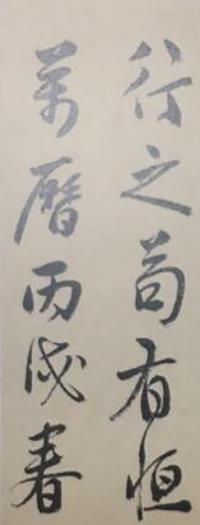 行之苟有恒
萬曆丙戌春